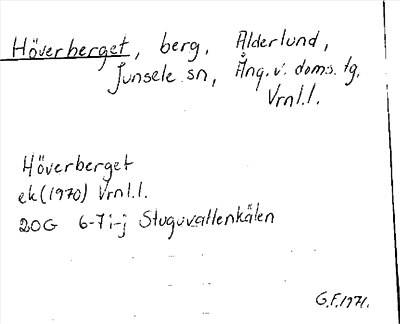 Höverberget, berg, Alderlund,
Junsele sn, Ång. v. doms. tg.
Vrnl.l.
Höverberget
ek (1970) Vrnl.l.
20G 6-7 i-j Stuguvattenkälen
G.F. 1971.